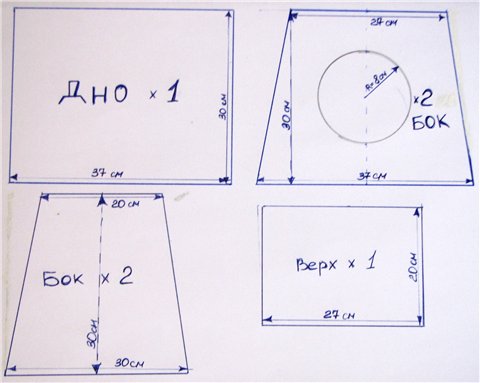 Дно x 1
30 см
37 см
27 см
R=8см
30 см
x2
БОК
37 см
20 см
Бок x 2
30см
30 см
Верх x 1
20 см
27 см